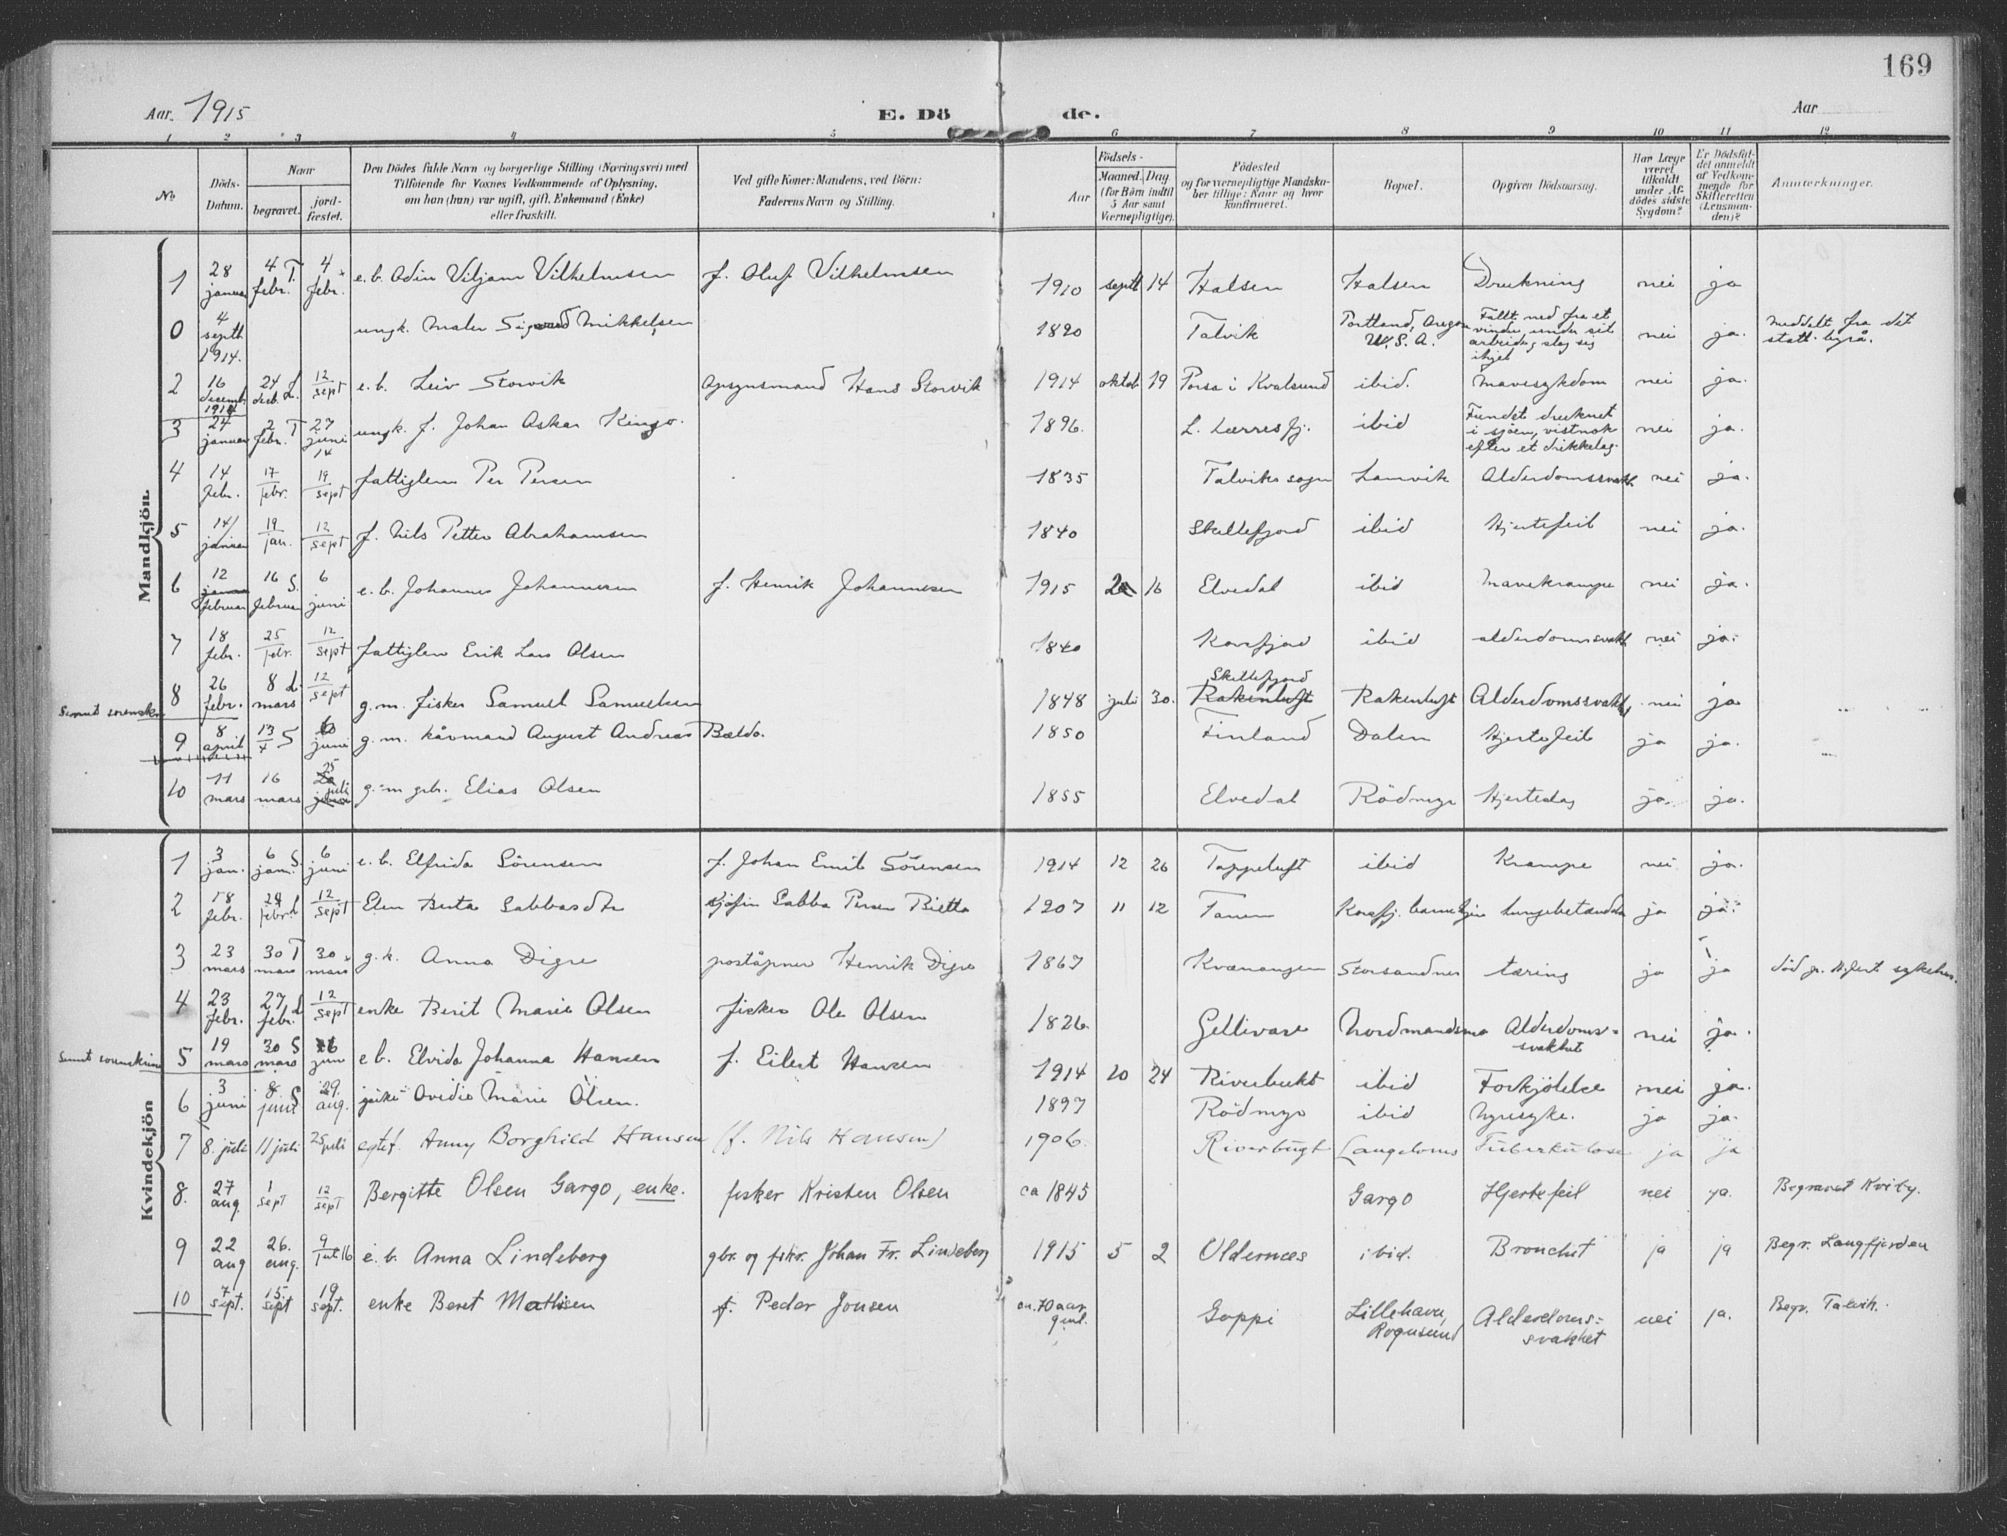 169
Aar. 1915 E. Döde. Aar
1 2 3 4 5 6 7 8 9 10 11 12
No. Döds-Datum. Naar begravet. jordfæstet. Den Dödes fulde Navn og borgerlige Stilling (Næringsvei) med Tilföiende for Voxnes Vedkommende af Oplysning, om han (hun) var ugift, gift, Enkemand (Enke) eller fraskilt. Ved gifte Koner: Mandens, ved Börn: Faderens Navn og Stilling. Födsels- Aar Maaned. Dag (for Börn indtil 5 Aar samt Værnepligtige). Födested og for værnepligtige Mandskaber tillige: Naar og hvor konfirmeret. Bopæl. Opgiven Dödsaarsag. Har Læge været tilkaldt under Afdödes sidste Sygdom? Er Dödsfaldet anmeldt af Vedkommende for Skifteretten (Lensmanden)? Anmerkninger.
Mandkjön.
1 28 januar 4 febr. T 4 febr. e. b. Odin Viljam Vilhelmsen f. Oluf Vilhelmsen 1910 septb 14 Halsen Halsen Drukning nei ja
0 4 septb 1914. ungk. maler Sigurd Mikkelsen 1890 Talvik Portland, Oregon U. S. A. Faldt ned fra et vindu, under sit arbeide, slog sig ihjel nei ja. Meddelt fra det stati. byrå.
2 16 decemb. 1914 24 deb. L. 12/sept e. b. Leiv Storvik Opsynsmand Hans Storvik 1914 oktob 19 Porsa i Kvalsund ibid. Mavesykdom nei ja.
3 24 januar 2 febr. T 27 juni ungk. f. Johan Oskar Kingo. 1896. L. Lærresfj. ibid Fundet druknet i sjöen, vistnok efter et drikkelag. nei ja.
4 14 febr. 17/febr. 14 19/sept fattiglem Per Persen 1835 Talviks sogn Lamvik Alderdomssvakh. nei ja.
5 14/januar 19/jan. 12/sept f. Nils Petter Abrahamsen 1840 Skillefjord ibid Hjertefeil nei ja.
6 12 februar 16 S. februar 6 juni e. b. Johannes Johannesen f. Henrik Johannesen 1915 2 16 Elvedal ibid Mavekrampe nei ja.
7 18 febr. 25/febr. 12/sept fattiglem Erik Lars Olsen 1840 Korsfjord ibid alderdomssvakh nei ja.
8 26 febr. 8 L. mars 12/sept g. m. fisker Samuel Samuelsen 1848 juli 30. Skillefjord Rakenluft Rakenluft Alderdomssvakh. nei ja.
9 8 april 13/4 S juni g. m. kåvmand August Andreas Bældo. 1850 Finland Dalen Hjertefeil ja ja.
10 11 mars 16 mars 25 juli g. m. gbr. Elias Olsen 1855 Elvedal Rödmyr Hjerteslag ja. ja.
Kvindekjön
1 3 jan. 6 S. jan. 6 juni e. b. Elfrida Sörensen f. Johan Emil Sörensen 1914 12 26 Toppeluft ibid Krampe nei ja.
2 18 febr. 24 febr. L 12/sept Elen Berta Sabbasdtr sjöfin Sabba Persen Rietta 1907 11 12 Tanen Korsfj. barnehjem Lungebetændelse ja ja.
3 23 mars 30 T mars 30 mars g. k. Anna Digre poståpner Henrik Digre 1867 Kvænangen Storsandnes tæring ja ja död p. H.fest sykehus.
4 23 febr. 27 L febr. 12/sept enke Berit Marie Olsen fisker Ole Olsen 1826. Gellivare Nordmandsnes Alderdoms-svakhet nei ja.
5 19 mars 30 S mars 6 juni e b. Elvida Johanna Hansen f. Eilert Hansen 1914 10 24 Riverbukt ibid Forkjölelse nei ja.
6 3 juni 8 S juni 29. aug. pike Ovidie Marie Olsen. 1897 Rödmyr ibid Nyresyke. ja ja.
7 8. juli 11 juli 25 juli egtef. Anny Borghild Hansen (f. Nils Hansen) 1906. Riverbugt Langebones Tuberkulose ja ja
8. 27 aug. 1 sept 12/sept Bergitte Olsen Gargo, enke. fisker Kristen Olsen ca 1845 Gargo Hjertefeil nei ja. Begravet Kviby.
9 22 aug 26. aug. 9/juli 16 e. b. Anna Lindeberg gbr. og fisker. Johan Fr. Lindeberg 1915 5 2 Oldernæs ibid. Bronchit ja ja Begr. Langfjorden
10 7 sept. 15 sept 19 sept. enke Beret Mathisen f. Peder Jonsen ca. 70 aar gml. Goppi Lillehavn, Rognsund Alderdoms=svakhet nei ja. Begr. Talvik.